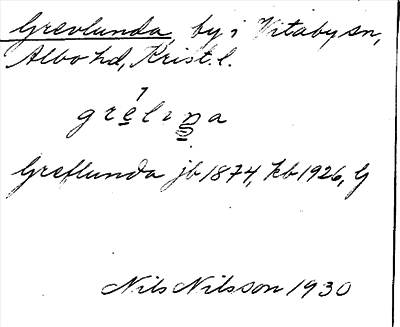 Grevlunda, by i Vitaby sn,
Albo hd, Krist. l.
Greflunda jb 1874, kb 1926, G
Nils Nilsson 1930